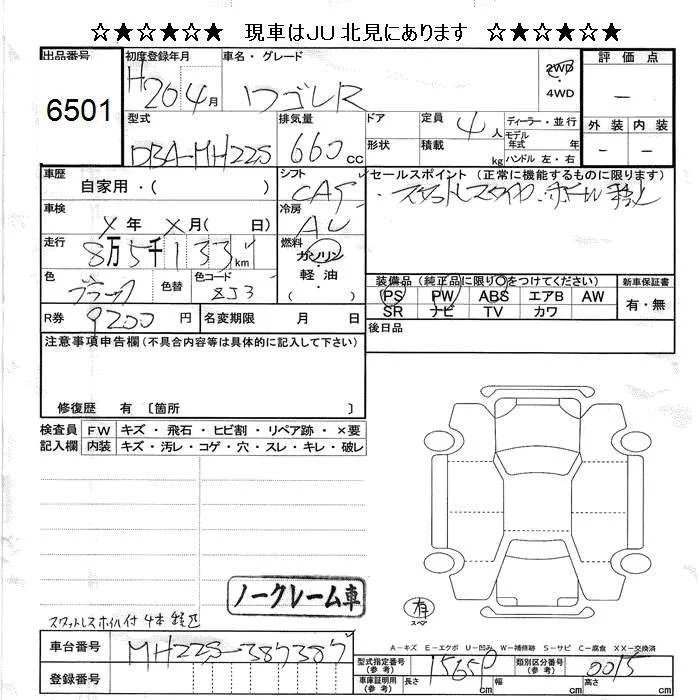 ☆★☆★☆★ 現車はJU北見にあります ☆★☆★☆★
出品番号 6501
初度登録年月 H20 4月
車名・グレード ワゴンR
2WD
4WD
評価点 －
外装 － 内装 －
型式 DBA-MH22S
排気量 660 cc
ドア 形状
定員 4人
積載 kg
ディーラー・並行
モデル年式 年式
ハンドル 左・右
車歴 自家用・( )
シフト CA5
セールスポイント (正常に機能するものに限ります)
車検 X年 X月( 日)
冷房 AC
走行 8万5千133km
燃料 ガソリン・軽油・( )
色 ブラック 色替
色コード ZJ3
装備品 (純正品に限り○をつけてください)
PS PW ABS エアB AW
SR ナビ TV カワ
新車保証書 有・無
R券 9200円
名変期限 月 日
後日品
注意事項申告欄 (不具合内容等は具体的に記入して下さい)
修復歴 有 〔箇所 〕
検査員記入欄
FW キズ・飛石・ヒビ割・リペア跡・×要
内装 キズ・汚レ・コゲ・穴・スレ・キレ・破レ
ノークレーム車
有 スペア
A－キズ E－エクボ U－凹み W－補修跡 S－サビ C－腐食 XX－交換済
車台番号 MH22S-387387
登録番号
型式指定番号(参考) 15650
類別区分番号(参考) 0015
車庫証明用(参考) 長さ cm 幅 cm 高さ cm